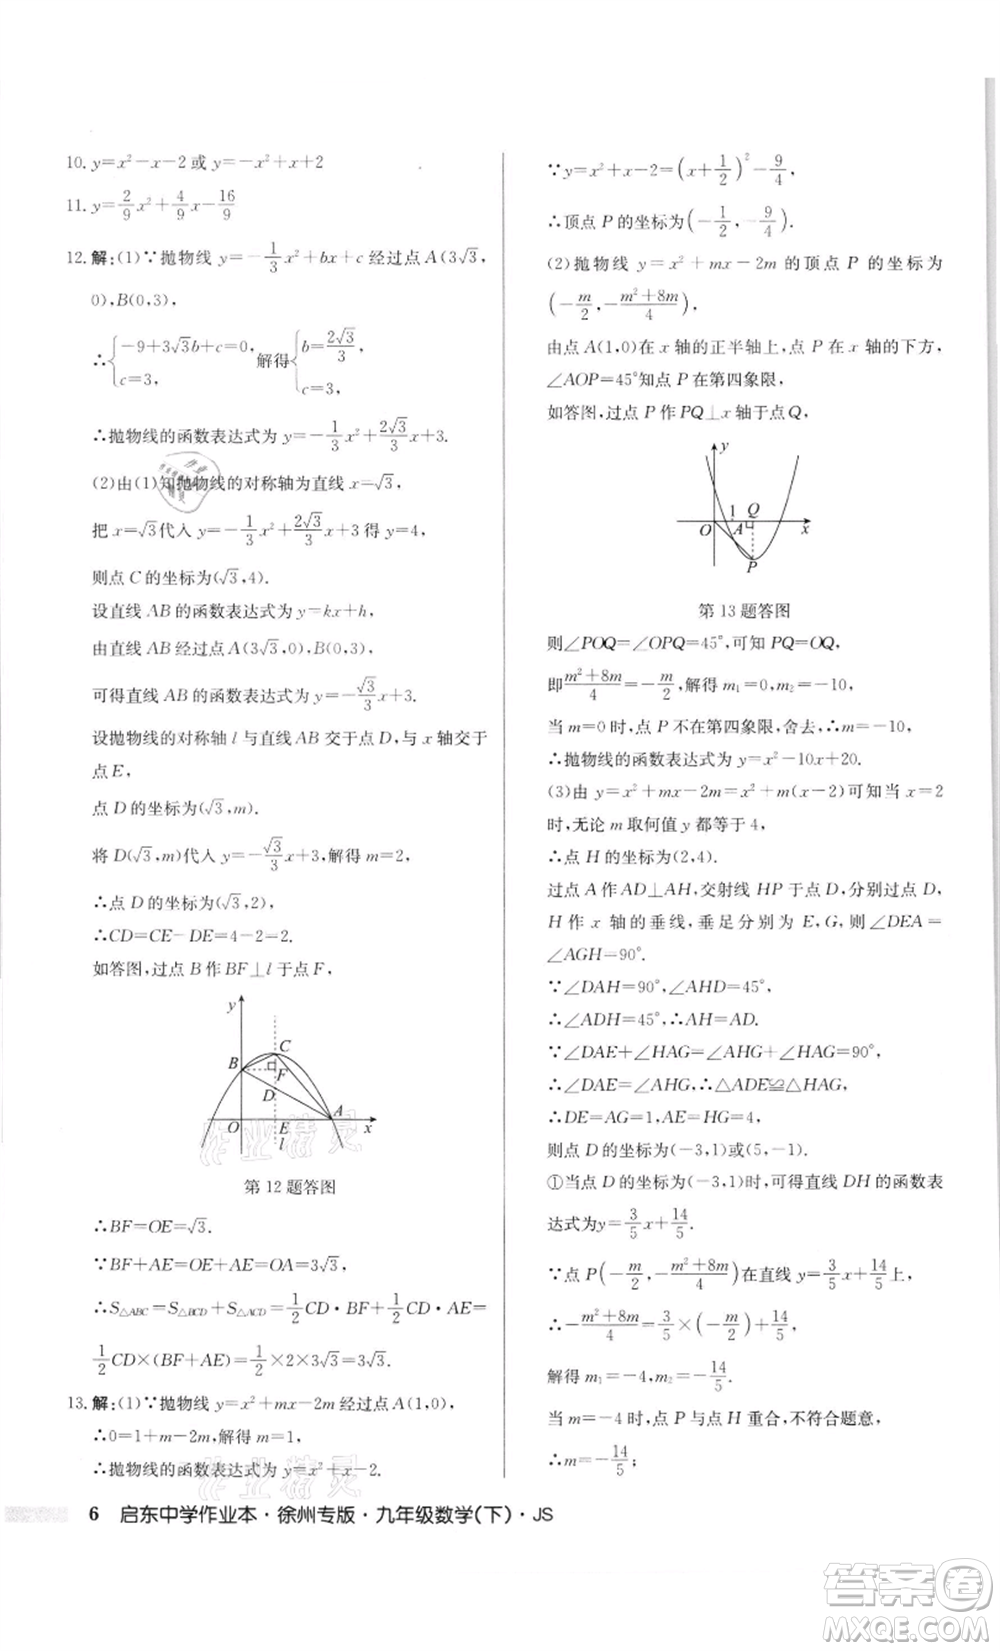 10. y=x²-x-2 或 y=-x²+x+2
11. y=2/9x²+4/9x-16/9
12. 解:(1)∵抛物线 y=-1/3x²+bx+c 经过点 A(3√3,
0),B(0,3),
∴{-9+3√3b+c=0, c=3, 解得{b=2√3/3, c=3,
∴抛物线的函数表达式为 y=-1/3x²+2√3/3x+3.
(2)由(1)知抛物线的对称轴为直线 x=√3,
把 x=√3代入 y=-1/3x²+2√3/3x+3 得 y=4,
则点 C 的坐标为(√3,4).
设直线 AB 的函数表达式为 y=kx+h,
由直线 AB 经过点 A(3√3,0),B(0,3),
可得直线 AB 的函数表达式为 y=-√3/3x+3.
设抛物线的对称轴 l 与直线 AB 交于点 D,与 x 轴交于
点 E,
点 D 的坐标为(√3,m).
将 D(√3,m)代入 y=-√3/3x+3,解得 m=2,
∴点 D 的坐标为(√3,2),
∴CD=CE-DE=4-2=2.
如答图,过点 B 作 BF⊥l 于点 F,
y
C
B
F
D
A
O
E
x
l
第 12 题答图
∴BF=OE=√3.
∵BF+AE=OE+AE=OA=3√3,
∴S△ABC=S△BCD+S△ACD=1/2CD·BF+1/2CD·AE=
1/2CD×(BF+AE)=1/2×2×3√3=3√3.
13. 解:(1)∵抛物线 y=x²+mx-2m 经过点 A(1,0),
∴0=1+m-2m,解得 m=1,
∴抛物线的函数表达式为 y=x²+x-2.
∵y=x²+x-2=(x+1/2)²-9/4,
∴顶点 P 的坐标为(-1/2,-9/4).
(2)抛物线 y=x²+mx-2m 的顶点 P 的坐标为
(-m/2,-m²+8m/4),
由点 A(1,0)在 x 轴的正半轴上,点 P 在 x 轴的下方,
∠AOP=45°知点 P 在第四象限,
如答图,过点 P 作 PQ⊥x 轴于点 Q,
y
1
Q
O
A
x
P
第 13 题答图
则∠POQ=∠OPQ=45°,可知 PQ=OQ,
即m²+8m/4=-m/2,解得 m₁=0,m₂=-10,
当 m=0 时,点 P 不在第四象限,舍去,∴m=-10,
∴抛物线的函数表达式为 y=x²-10x+20.
(3)由 y=x²+mx-2m=x²+m(x-2)可知当 x=2
时,无论 m 取何值 y 都等于 4,
∴点 H 的坐标为(2,4).
过点 A 作 AD⊥AH,交射线 HP 于点 D,分别过点 D,
H 作 x 轴的垂线,垂足分别为 E,G,则∠DEA=
∠AGH=90°.
∵∠DAH=90°,∠AHD=45°,
∴∠ADH=45°,∴AH=AD.
∵∠DAE+∠HAG=∠AHG+∠HAG=90°,
∴∠DAE=∠AHG,∴△ADE≌△HAG,
∴DE=AG=1,AE=HG=4,
则点 D 的坐标为(-3,1)或(5,-1).
①当点 D 的坐标为(-3,1)时,可得直线 DH 的函数表
达式为y=3/5x+14/5.
∵点 P(-m/2,-m²+8m/4)在直线 y=3/5x+14/5上,
∴-m²+8m/4=3/5×(-m/2)+14/5,
解得 m₁=-4,m₂=-14/5.
当 m=-4 时,点 P 与点 H 重合,不符合题意,
∴m=-14/5;
作业精灵
作业精灵
6 启东中学作业本·徐州专版·九年级数学(下)·JS
答案卷
MXQE.COM